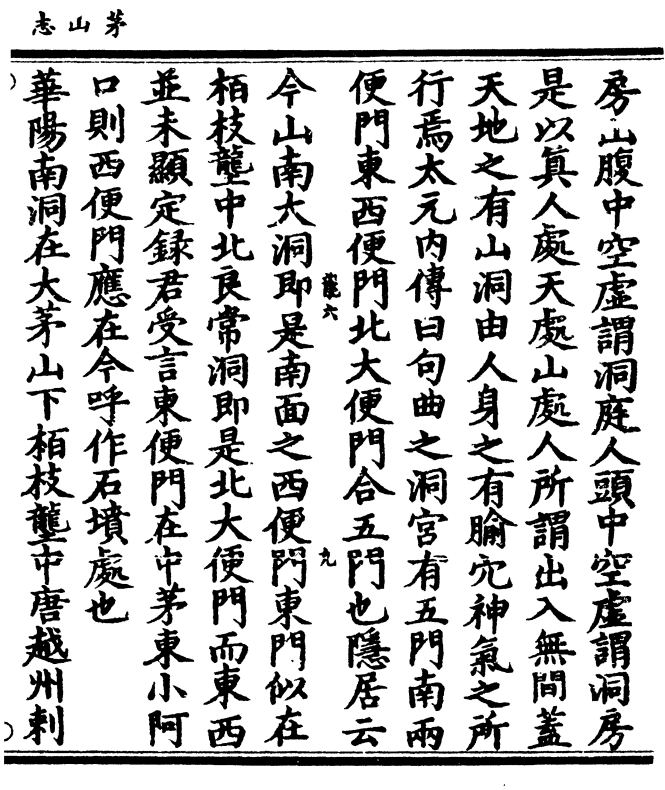 茅山志
房山腹中空虛謂洞庭人頭中空虛謂洞房
是以眞人處天處山處人所謂出入無間蓋
天地之有山洞由人身之有腧穴神氣之所
行焉太元內傳曰句曲之洞宮有五門南兩
便門東西便門北大便門合五門也隱居云
龍六
九
今山南大洞即是南面之西便門東門似在
栢枝壟中北良常洞即是北大便門而東西
並未顯定録君受言東便門在中茅東小阿
口則西便門應在今呼作石墳處也
華陽南洞在大茅山下栢枝壟中唐越州刺